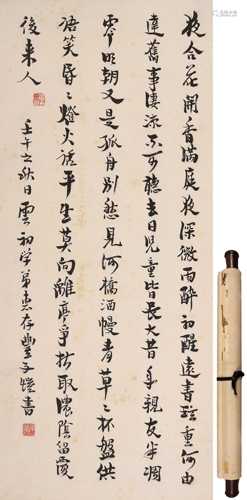 夜合花開香滿庭夜深微雨醉初醒遠書珍重何由
達舊事淒涼不可聽去日兒童皆長大昔年親友半凋
零明朝又是孤舟別愁見河橋酒幔青草〻杯盤供
語笑昏〻燈火話平生莫向離亭爭折取濃陰留覆
後来人
壬午之秋日雲初学弟惠存豐子愷書